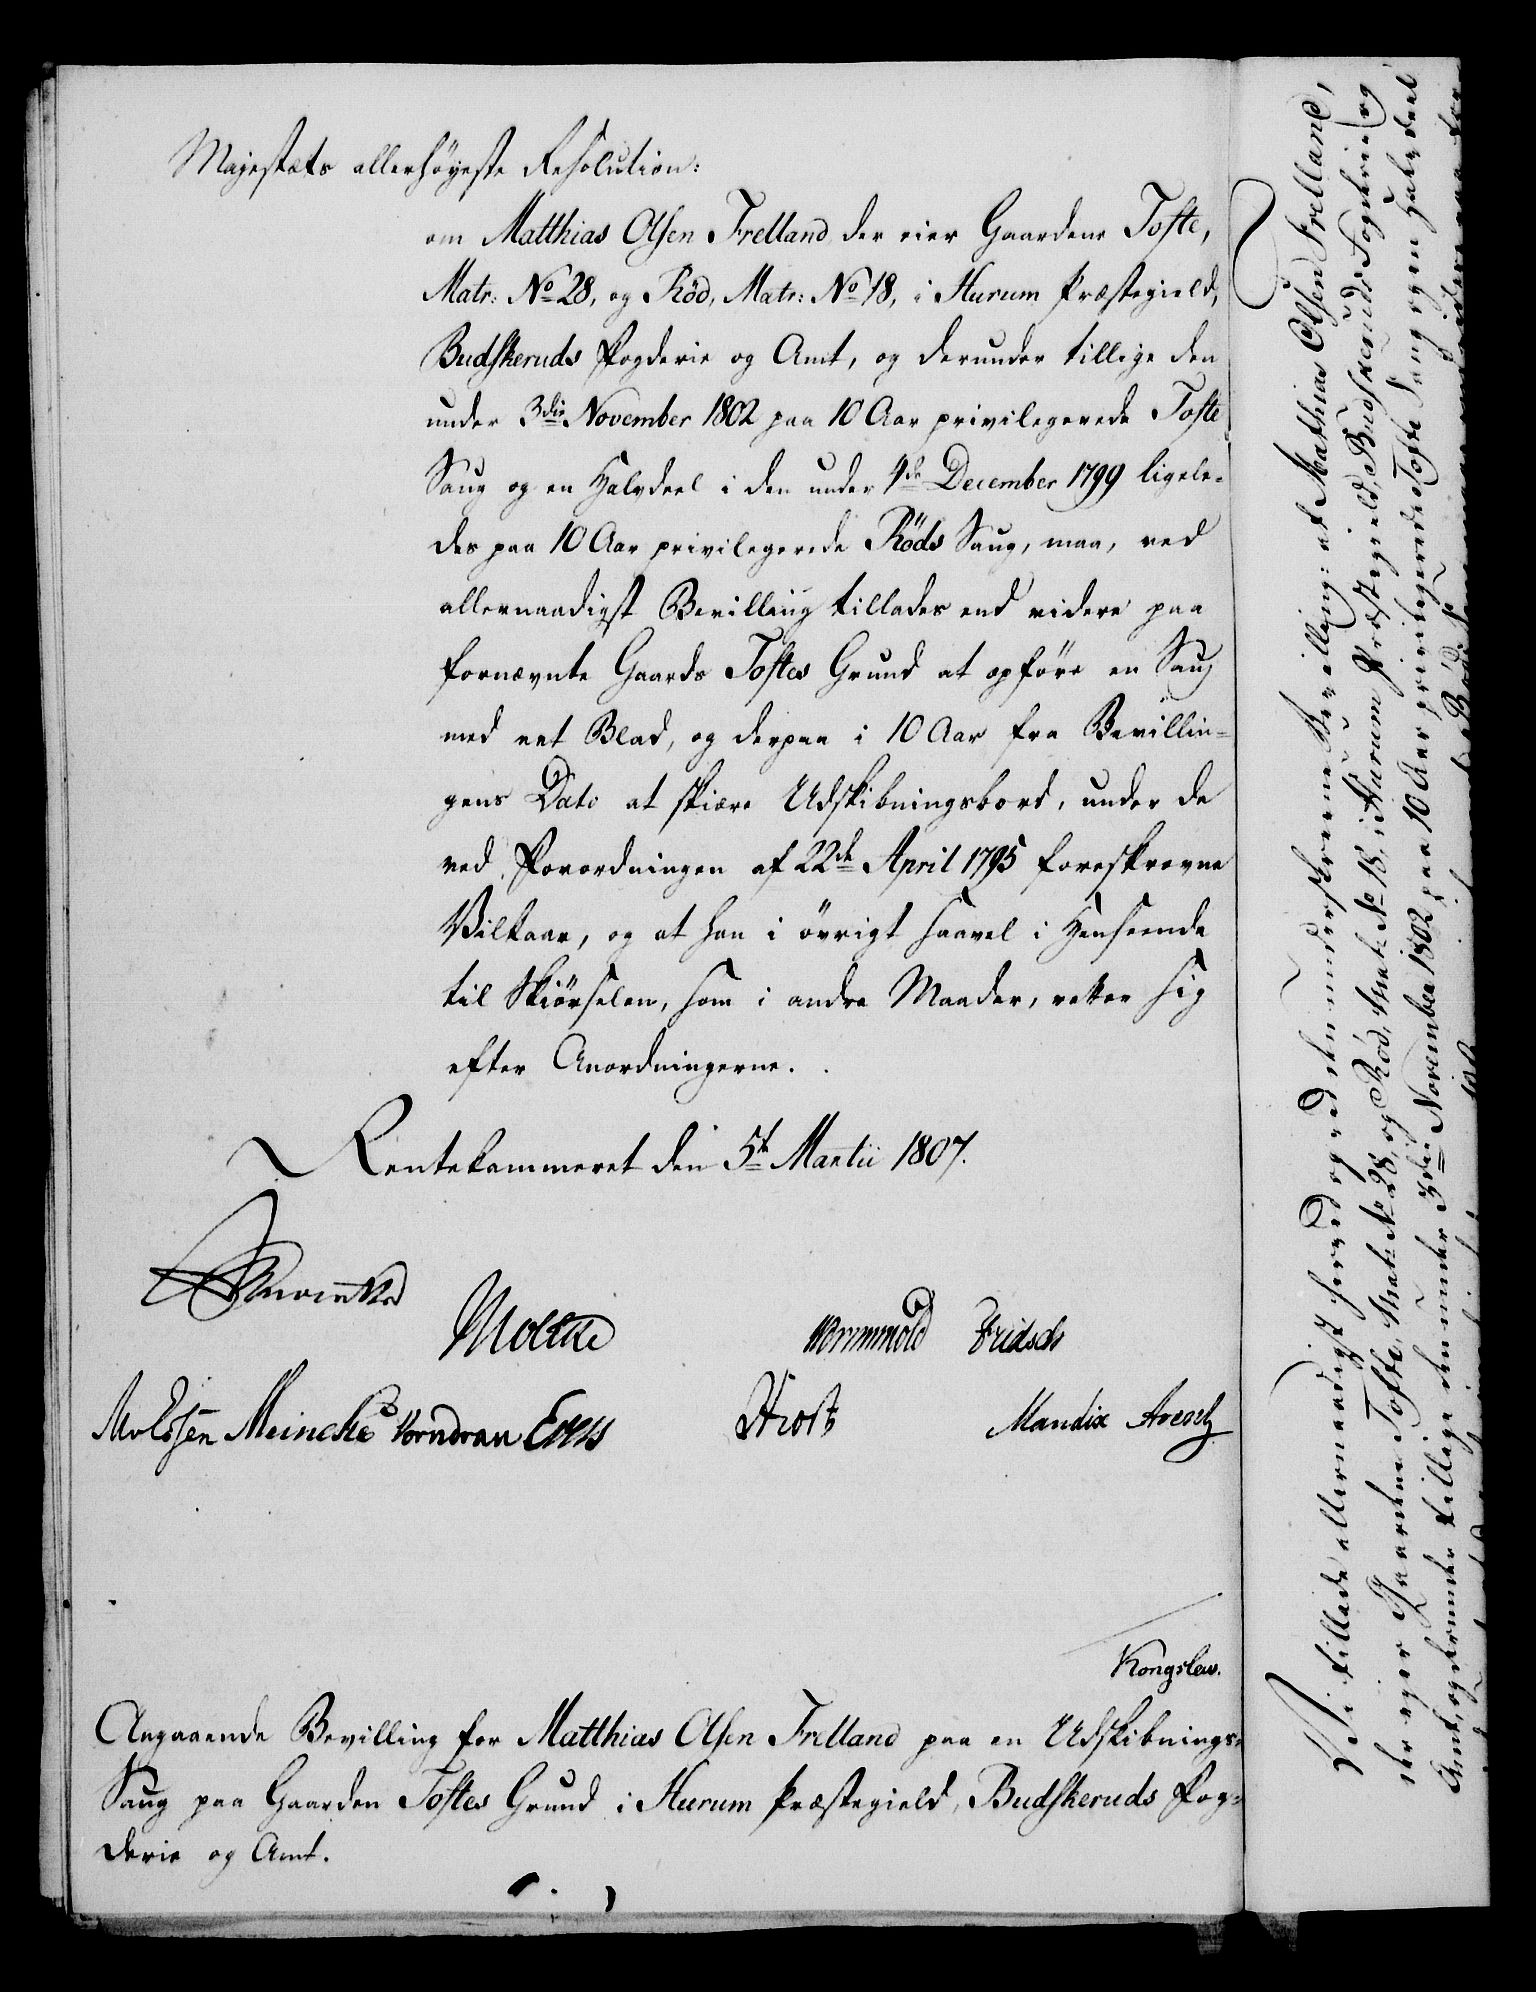 Majestæts allerhøyeste Resolution:
om Matthias Olsen Frelland, der eier Gaardene Tofte,
Matr: No 28, og Röd, Matr: No 18, i Hurum Præstegield,
Budskeruds Fogderie og Amt, og derunder tillige den
under 3die November 1802 paa 10 Aar privilegerede Tofte
Saug og en Halvdeel i den under 4de December 1799 ligele-
des paa 10 Aar privilegerede Röds Saug, maa, ved
allernaadigst Bevilling tillades end videre paa
fornævnte Gaards Toftes Grund at opföre en Saug
med eet Blad, og derpaa i 10 Aar fra Bevillin-
gens Dato at skiære Udskibningsbord, under de
ved Forordningen af 22de April 1795 foreskrevne
Vilkaar, og at han i övrigt saavel i Henseende
til Skiörselen, som i andre Maader, retter sig
efter Anordningerne.
Rentekammeret den 5te Martii 1807.
Moltke Wormskiold Fridsch
Meincke Korndran Evers Holst Mandix
Kongslew.
Angaaende Bevilling for Matthias Olsen Frelland paa en Udskibnings-
Saug paa Gaarden Toftes Grund i Hurum Præstegield, Budskeruds Fog-
derie og Amt.
Vi tillade allernaadigst herved og ved den underskrevne Bevilling: at Mathias Olsen Frelland,
der eyer Gaardene Tofte, Mat: No 28, og Röd, Mat: No 18, i Hurum Præstegield, Budskeruds Fogderie og
Amt, og derunder tillige den under 3die November 1802 paa 10 Aar privilegerede Tofte Saug og en Halvdeel